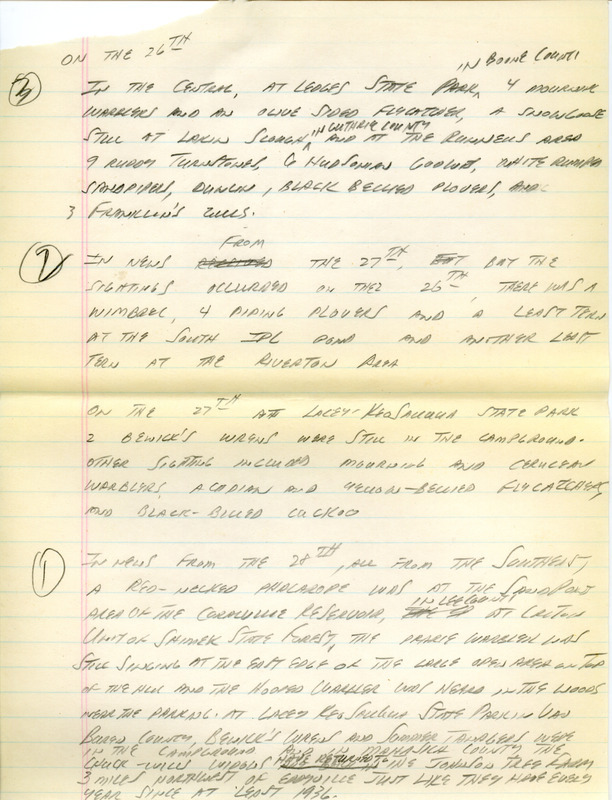 ON THE 26TH
IN BOONE COUNTY
3 IN THE CENTRAL, AT LEDGES STATE PARK, 4 MOURNING
WARBLERS AND AN OLIVE SIDED FLYCATCHER, A SNOWGOOSE
IN GUTHRIE COUNTY
STILL AT LAKIN SLOUGH AND AT THE RUNNELLS AREA
9 RUDDY TURNSTONES, 6 HUDSONIAN GODWITS, WHITE RUMPED
SANDPIPERS, DUNLIN, BLACK BELLIED PLOVERS, AND
3 FRANKLIN'S GULLS.
FROM
2 IN NEWS RECEIVED THE 27TH, BUT THE
SIGHTINGS OCCURRED ON THE 26TH, THERE WAS A
WIMBREL, 4 PIPING PLOVERS AND A LEAST TERN
AT THE SOUTH IPL POND AND ANOTHER LEAST
TERN AT THE RIVERTON AREA
ON THE 27TH AT LACEY-KEOSAUQUA STATE PARK
2 BEWICK'S WRENS WERE STILL IN THE CAMPGROUND.
OTHER SIGHTING INCLUDED MOURNING AND CERULEAN
WARBLERS, ACADIAN AND YELLOW-BELLIED FLYCATCHERS,
AND BLACK-BILLED CUCKOO
1 IN NEWS FROM THE 28TH, ALL FROM THE SOUTHEAST,
A RED-NECKED PHALAROPE WAS AT THE SAND POINT
IN LEE COUNTY
AREA OF THE CORALVILLE RESERVOIR, AT CROTON
UNIT OF SHIMEK STATE FOREST, THE PRAIRIE WARBLER WAS
STILL SINGING AT THE EAST EDGE OF THE LARGE OPEN AREA ON TOP
OF THE HILL AND THE HOODED WARBLER WAS HEARD IN THE WOODS
NEAR THE PARKING. AT LACEY KEOSAUQUA STATE PARK IN VAN
BUREN COUNTY, BEWICK'S WRENS AND SUMMER TANAGERS WERE
IN THE CAMPGROUND AND IN MAHASKA COUNTY THE
CHUCK-WILL'S WIDOWS HAVE RETURNED TO THE JOHNSON TREE FARM
3 MILES NORTHWEST OF EDDYVILLE JUST LIKE THEY HAVE EVERY
YEAR SINCE AT LEAST 1936.